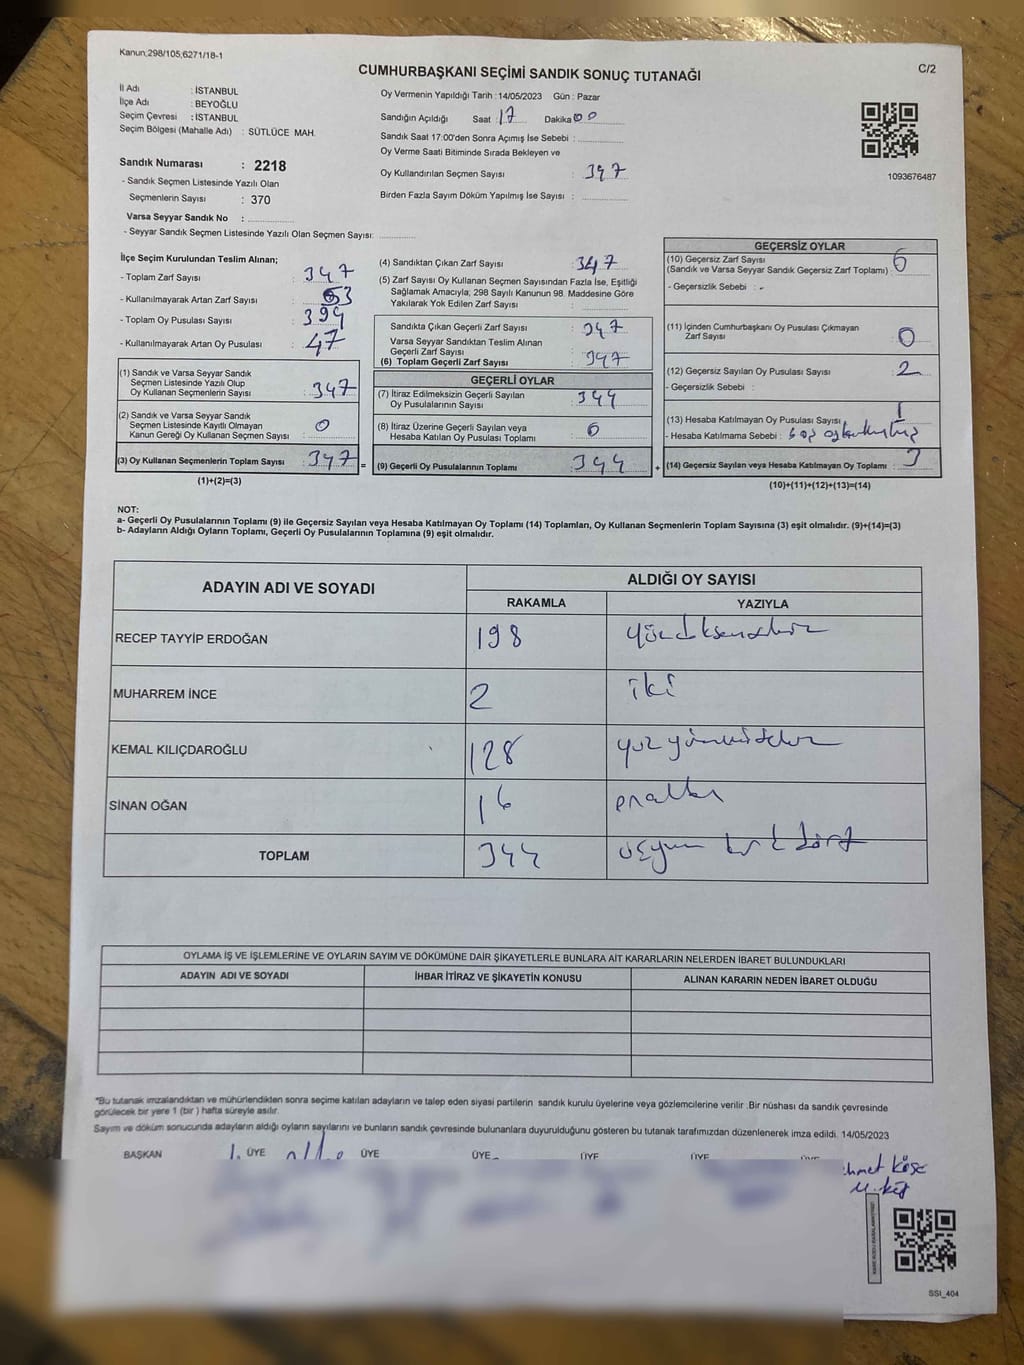 Kanun,298/105,6271/18-1
C/2
CUMHURBAŞKANI SEÇİMİ SANDIK SONUÇ TUTANAĞI
İl Adı : İSTANBUL
İlçe Adı : BEYOĞLU
Seçim Çevresi : İSTANBUL
Seçim Bölgesi (Mahalle Adı) : SÜTLÜCE MAH.
Sandık Numarası : 2218
- Sandık Seçmen Listesinde Yazılı Olan
Seçmenlerin Sayısı : 370
Varsa Seyyar Sandık No :
- Seyyar Sandık Seçmen Listesinde Yazılı Olan Seçmen Sayısı:
Oy Vermenin Yapıldığı Tarih : 14/05/2023 Gün : Pazar
Sandığın Açıldığı Saat : 17 Dakika 00
Sandık Saat 17:00'den Sonra Açımış İse Sebebi :
Oy Verme Saati Bitiminde Sırada Bekleyen ve
Oy Kullandırılan Seçmen Sayısı : 347
Birden Fazla Sayım Döküm Yapılmış İse Sayısı :
1093676487
İlçe Seçim Kurulundan Teslim Alınan;
- Toplam Zarf Sayısı : 347
- Kullanılmayarak Artan Zarf Sayısı : 53
- Toplam Oy Pusulası Sayısı : 394
- Kullanılmayarak Artan Oy Pusulası : 47
(1) Sandık ve Varsa Seyyar Sandık
Seçmen Listesinde Yazılı Olup
Oy Kullanan Seçmenlerin Sayısı : 347
(2) Sandık ve Varsa Seyyar Sandık
Seçmen Listesinde Kayıtlı Olmayan
Kanun Gereği Oy Kullanan Seçmen Sayısı : 0
(3) Oy Kullanan Seçmenlerin Toplam Sayısı : 347
(1)+(2)=(3)
(4) Sandıktan Çıkan Zarf Sayısı : 347
(5) Zarf Sayısı Oy Kullanan Seçmen Sayısından Fazla İse, Eşitliği
Sağlamak Amacıyla, 298 Sayılı Kanunun 98. Maddesine Göre
Yakılarak Yok Edilen Zarf Sayısı :
Sandıkta Çıkan Geçerli Zarf Sayısı : 347
Varsa Seyyar Sandıktan Teslim Alınan
Geçerli Zarf Sayısı :
(6) Toplam Geçerli Zarf Sayısı : 347
GEÇERLİ OYLAR
(7) İtiraz Edilmeksizin Geçerli Sayılan
Oy Pusulalarının Sayısı : 344
(8) İtiraz Üzerine Geçerli Sayılan veya
Hesaba Katılan Oy Pusulası Toplamı : 0
(9) Geçerli Oy Pusulalarının Toplamı : 344
= +
GEÇERSİZ OYLAR
(10) Geçersiz Zarf Sayısı
(Sandık ve Varsa Seyyar Sandık Geçersiz Zarf Toplamı) : 0
- Geçersizlik Sebebi : -
(11) İçinden Cumhurbaşkanı Oy Pusulası Çıkmayan
Zarf Sayısı : 0
(12) Geçersiz Sayılan Oy Pusulası Sayısı : 2
- Geçersizlik Sebebi :
(13) Hesaba Katılmayan Oy Pusulası Sayısı : 1
- Hesaba Katılmama Sebebi :
(14) Geçersiz Sayılan veya Hesaba Katılmayan Oy Toplamı : 3
(10)+(11)+(12)+(13)=(14)
NOT:
a- Geçerli Oy Pusulalarının Toplamı (9) ile Geçersiz Sayılan veya Hesaba Katılmayan Oy Toplamı (14) Toplamları, Oy Kullanan Seçmenlerin Toplam Sayısına (3) eşit olmalıdır. (9)+(14)=(3)
b- Adayların Aldığı Oyların Toplamı, Geçerli Oy Pusulalarının Toplamına (9) eşit olmalıdır.
ADAYIN ADI VE SOYADI ALDIĞI OY SAYISI
RAKAMLA YAZIYLA
RECEP TAYYİP ERDOĞAN 198 yüzdoksansekiz
MUHARREM İNCE 2 iki
KEMAL KILIÇDAROĞLU 128 yüzyirmisekiz
SİNAN OĞAN 16 onaltı
TOPLAM 344 üçyüz kırk dört
OYLAMA İŞ VE İŞLEMLERİNE VE OYLARIN SAYIM VE DÖKÜMÜNE DAİR ŞİKAYETLERLE BUNLARA AİT KARARLARIN NELERDEN İBARET BULUNDUKLARI
ADAYIN ADI VE SOYADI İHBAR İTİRAZ VE ŞİKAYETİN KONUSU ALINAN KARARIN NEDEN İBARET OLDUĞU
*Bu tutanak imzalandıktan ve mühürlendikten sonra seçime katılan adayların ve talep eden siyasi partilerin sandık kurulu üyelerine veya gözlemcilerine verilir .Bir nüshası da sandık çevresinde
görülecek bir yere 1 (bir ) hafta süreyle asılır.
Sayım ve döküm sonucunda adayların aldığı oyların sayılarını ve bunların sandık çevresinde bulunanlara duyurulduğunu gösteren bu tutanak tarafımızdan düzenlenerek imza edildi. 14/05/2023
BAŞKAN ÜYE ÜYE ÜYE ÜYE ÜYE ÜYE
SSI_404